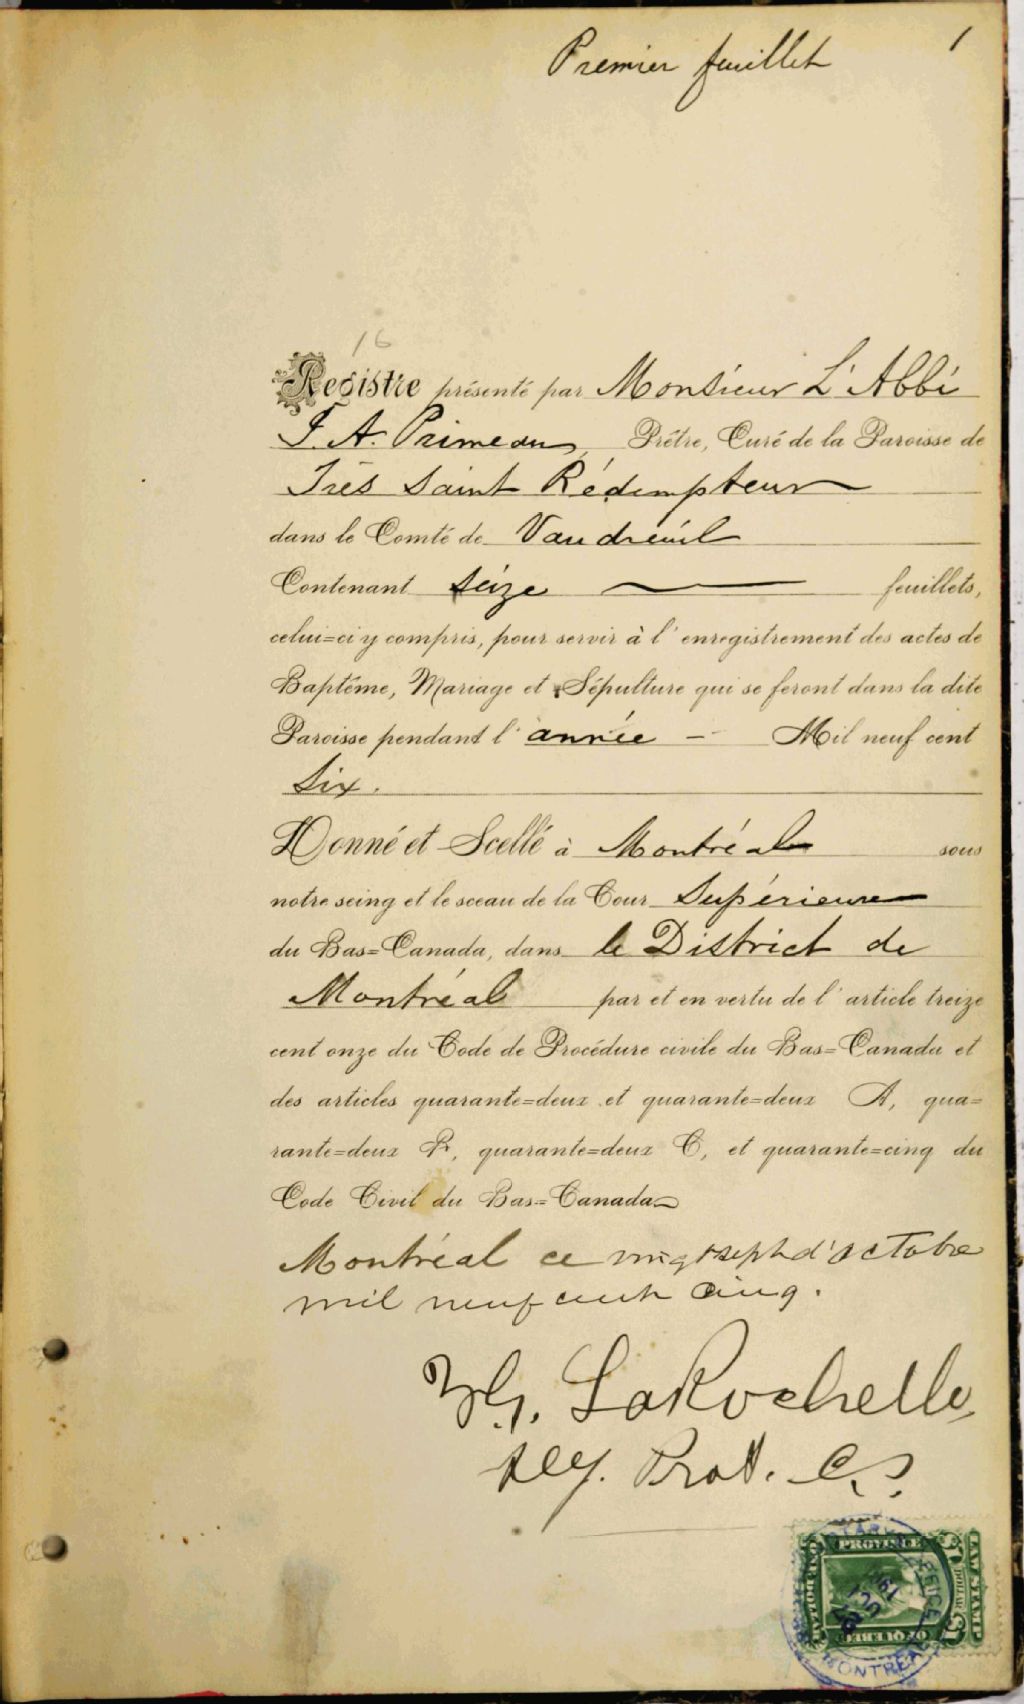 Premier feuillet
1
16
Registre présenté par Monsieur L'Abbé
J. A. Primeau, Prêtre, Curé de la Paroisse de
Très Saint Rédempteur
dans le Comté de Vaudreuil
Contenant seize feuillets,
celui=ci y compris, pour servir à l'enregistrement des actes de
Baptême, Mariage et Sépulture qui se feront dans la dite
Paroisse pendant l'année - Mil neuf cent
Six.
Donné et Scellé à Montréal sous
notre seing et le sceau de la Cour Supérieure
du Bas=Canada, dans le District de
Montréal par et en vertu de l'article treize
cent onze du Code de Procédure civile du Bas=Canada et
des articles quarante=deux et quarante=deux A, qua=
rante=deux B, quarante=deux C, et quarante=cinq du
Code Civil du Bas=Canada
Montréal ce vingt sept d'octobre
mil neuf cent cinq.
LaRochelle
Dep. Prot. C.S.
PROVINCE
OF QUEBEC
LAW STAMP
$1 DOLLAR $1
MONTREAL